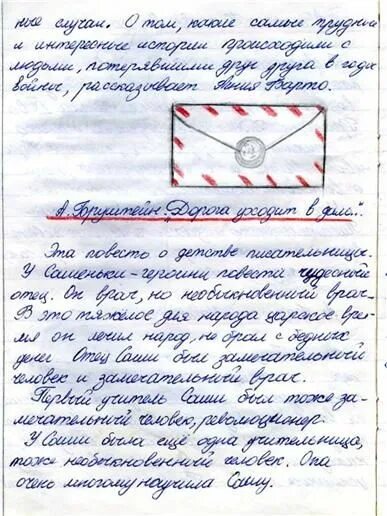 ные случаи. О том, какие самые трудные
и интересные истории происходили с
людьми, потерявшими друг друга в годы
войны, рассказывает Агния Барто.
А. Бруштейн. "Дорога уходит в даль".
Эта повесть о детстве писательницы.
У Сашеньки-героини повести чудесный
отец. Он врач, но необыкновенный врач.
В это тяжёлое для народа царское вре-
мя он лечил народ, не брал с бедных
денег. Отец Саши был замечательный
человек и замечательный врач.
Первый учитель Саши был тоже за-
мечательный человек, революционер.
У Саши была ещё одна учительница,
тоже необыкновенный человек. Она
очень многому научила Сашу.